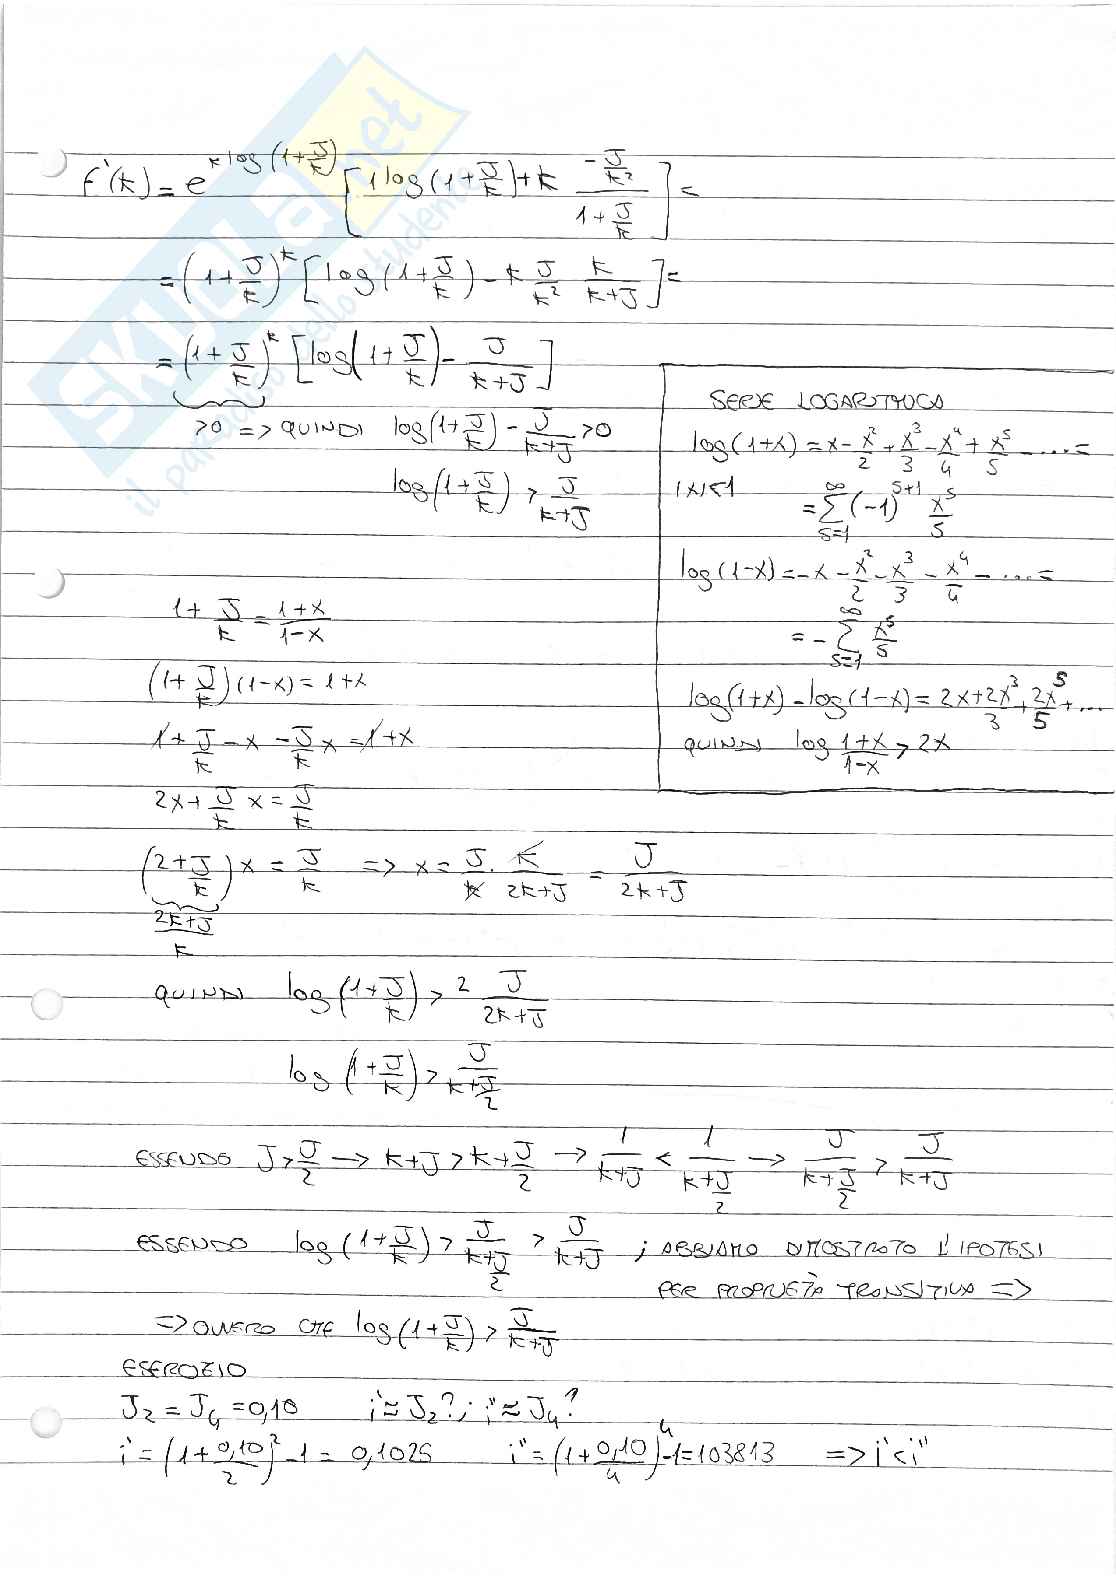 SKUOLA.net
il paradiso dello studente
f'(k) = e^{k log(1+J/k)} [1 log(1+J/k) + k (-J/k²)/(1+J/k)] =
= (1+J/k)^k [log(1+J/k) - k J/k² k/(k+J)] =
= (1+J/k)^k [log(1+J/k) - J/(k+J)]
>0 => QUINDI log(1+J/k) - J/(k+J) > 0
log(1+J/k) > J/(k+J)
SERIE LOGARITMICA
log(1+x) = x - x²/2 + x³/3 - x⁴/4 + x⁵/5 - .... =
|x|<1 = ∑_{s=1}^{∞} (-1)^{s+1} x^s/s
log(1-x) = -x - x²/2 - x³/3 - x⁴/4 - .... =
= -∑_{s=1}^{∞} x^s/s
log(1+x) - log(1-x) = 2x + 2x³/3 + 2x⁵/5 + ...
QUINDI log (1+x)/(1-x) > 2x
1 + J/k = (1+x)/(1-x)
(1+J/k)(1-x) = 1+x
1 + J/k - x - J/k x = 1+x
2x + J/k x = J/k
(2+J/k) x = J/k => x = J/k · k/(2k+J) = J/(2k+J)
(2k+J)/k
QUINDI log(1+J/k) > 2 J/(2k+J)
log(1+J/k) > J/(k+J/2)
ESSENDO J > J/2 → k+J > k+J/2 → 1/(k+J) < 1/(k+J/2) → J/(k+J/2) > J/(k+J)
ESSENDO log(1+J/k) > J/(k+J/2) > J/(k+J) ; ABBIAMO DIMOSTRATO L'IPOTESI
PER PROPRIETÀ TRANSITIVA =>
=> OVVERO CHE log(1+J/k) > J/(k+J)
ESERCIZIO
J₂ = J₄ = 0,10 i' ≈ J₂? ; i'' ≈ J₄?
i' = (1+0,10/2)² - 1 = 0,1025 i'' = (1+0,10/4)⁴ - 1 = 103813 => i' < i''